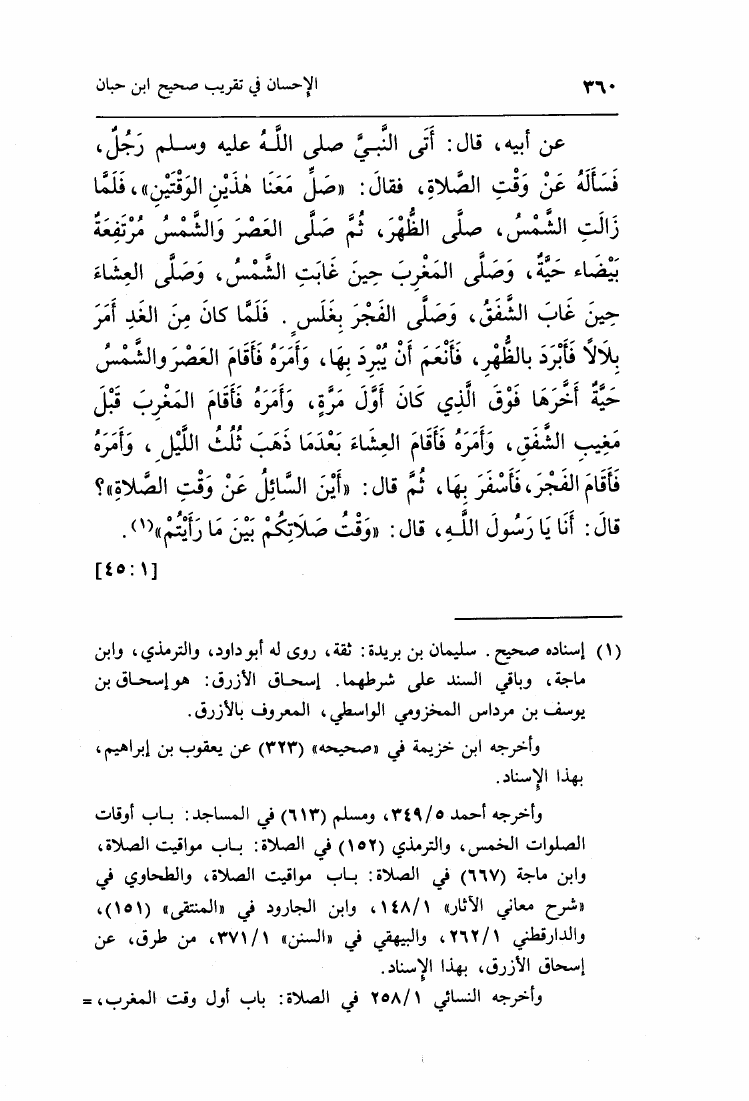 ٣٦٠ الإحسان في تقريب صحيح ابن حبان
عن أبيه، قال: أَتَى النَّبيَّ صلى اللَّـهُ عليه وسلم رَجُلٌ،
فَسَأَلَهُ عَنْ وَقْتِ الصَّلاةِ، فقالَ: «صَلِّ مَعَنَا هٰذَيْنِ الوَقْتَيْنِ»، فَلَمَّا
زَالَتِ الشَّمْسُ، صلَّى الظُّهْرَ، ثُمَّ صَلَّى العَصْرَ وَالشَّمْسُ مُرْتَفِعَةٌ
بَيْضَاء حَيَّةٌ، وَصَلَّى المَغْرِبَ حِينَ غَابَتِ الشَّمْسُ، وَصَلَّى العِشَاءَ
حِينَ غَابَ الشَّفَقُ، وَصَلَّى الفَجْرَ بِغَلَسٍ. فَلَمَّا كانَ مِنَ الغَدِ أَمَرَ
بِلَالًا فَأَبْرَدَ بالظُّهْرِ، فَأَنْعَمَ أَنْ يُبْرِدَ بِهَا، وَأَمَرَهُ فَأَقَامَ العَصْرَ والشَّمْسُ
حَيَّةٌ أَخَّرَهَا فَوْقَ الَّذِي كَانَ أَوَّلَ مَرَّةٍ، وَأَمَرَهُ فَأَقَامَ المَغْرِبَ قَبْلَ
مَغِيبِ الشَّفَقِ، وَأَمَرَهُ فَأَقَامَ العِشَاءَ بَعْدَمَا ذَهَبَ ثُلُثُ اللَّيْلِ، وَأَمَرَهُ
فَأَقَامَ الفَجْرَ، فَأَسْفَرَ بِهَا، ثُمَّ قال: «أَيْنَ السَّائِلُ عَنْ وَقْتِ الصَّلاةِ»؟
قالَ: أَنَا يَا رَسُولَ اللَّـهِ، قال: «وَقْتُ صَلَاتِكُمْ بَيْنَ مَا رَأَيْتُمْ»(١).
[٤٥:١]
(١) إسناده صحيح. سليمان بن بريدة: ثقة، روى له أبو داود، والترمذي، وابن
ماجة، وباقي السند على شرطهما. إسحاق الأزرق: هو إسحاق بن
يوسف بن مرداس المخزومي الواسطي، المعروف بالأزرق.
وأخرجه ابن خزيمة في «صحيحه» (٣٢٣) عن يعقوب بن إبراهيم،
بهذا الإسناد.
وأخرجه أحمد ٣٤٩/٥، ومسلم (٦١٣) في المساجد: باب أوقات
الصلوات الخمس، والترمذي (١٥٢) في الصلاة: باب مواقيت الصلاة،
وابن ماجة (٦٦٧) في الصلاة: باب مواقيت الصلاة، والطحاوي في
«شرح معاني الآثار» ١٤٨/١، وابن الجارود في «المنتقى» (١٥١)،
والدارقطني ٢٦٢/١، والبيهقي في «السنن» ٣٧١/١، من طرق، عن
إسحاق الأزرق، بهذا الإسناد.
وأخرجه النسائي ٢٥٨/١ في الصلاة: باب أول وقت المغرب، =